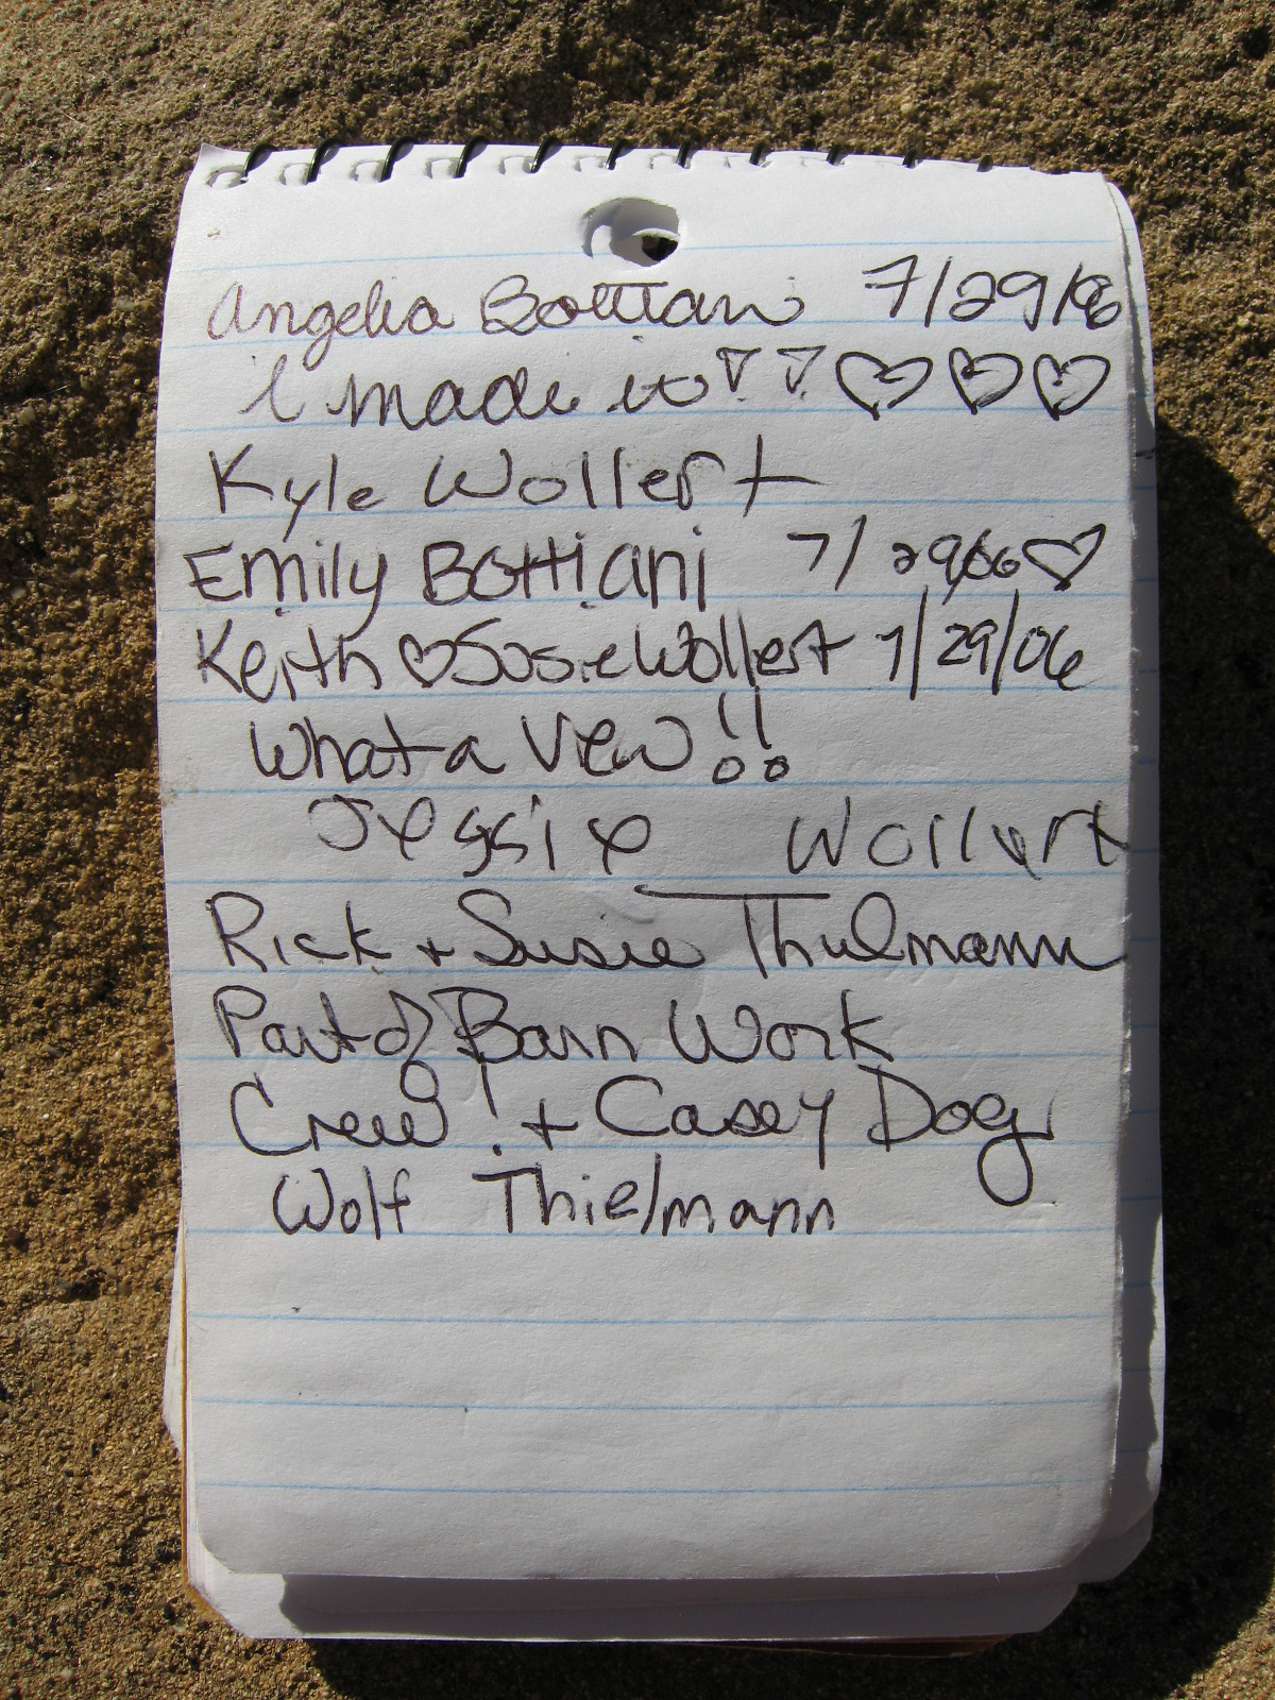 Angelia Bottiani 7/29/06
I made it!! ♡♡♡
Kyle Wollert
Emily Bottiani 7/29/06 ♡
Keith ♡ Susie Wollert 7/29/06
What a View!!
Jessie Wollert
Rick + Susie Thielmann
Part of Barn Work
Crew! + Casey Dog
Wolf Thielmann